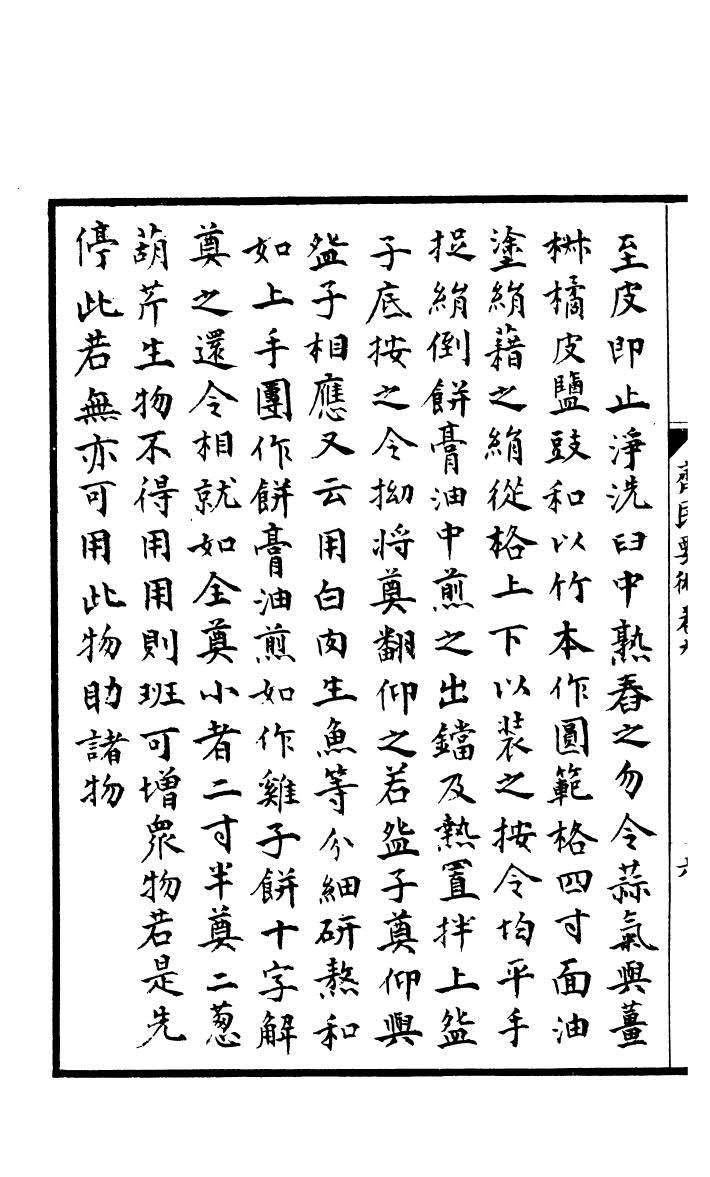 至皮即止淨洗臼中熟舂之勿令蒜氣與薑
椒橘皮鹽豉和以竹本作圓範格四寸面油
塗絹藉之絹從格上下以裝之按令均平手
捉絹倒餅膏油中煎之出鐺及熱置拌上盌
子底按之令拗將奠翻仰之若盌子奠仰與
盌子相應又云用白肉生魚等分細研熬和
如上手團作餅膏油煎如作雞子餅十字解
奠之還令相就如全奠小者二寸半奠二葱
葫芹生物不得用用則班可增眾物若是先
停此若無亦可用此物助諸物
齊民要術卷九
六